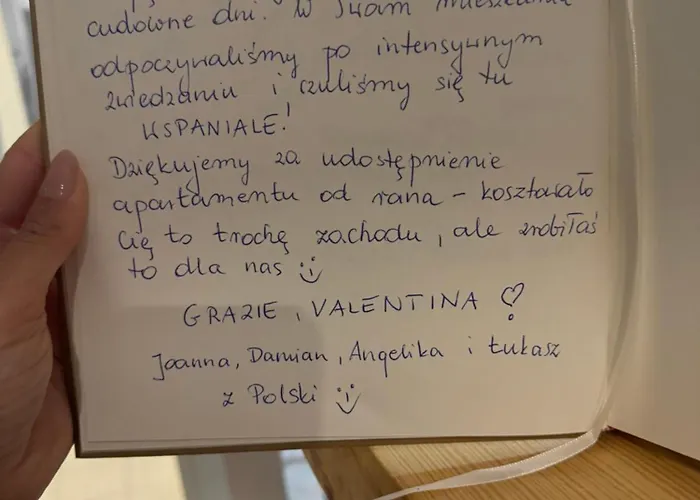 cudowne dni. W Twoim mieszkaniu
odpoczywaliśmy po intensywnym
zwiedzaniu i czuliśmy się tu
WSPANIALE!
Dziękujemy za udostępnienie
apartamentu od rana - kosztowało
Cię to trochę zachodu, ale zrobiłaś
to dla nas :)
GRAZIE, VALENTINA
Joanna, Damian, Angelika i Łukasz
z Polski :)